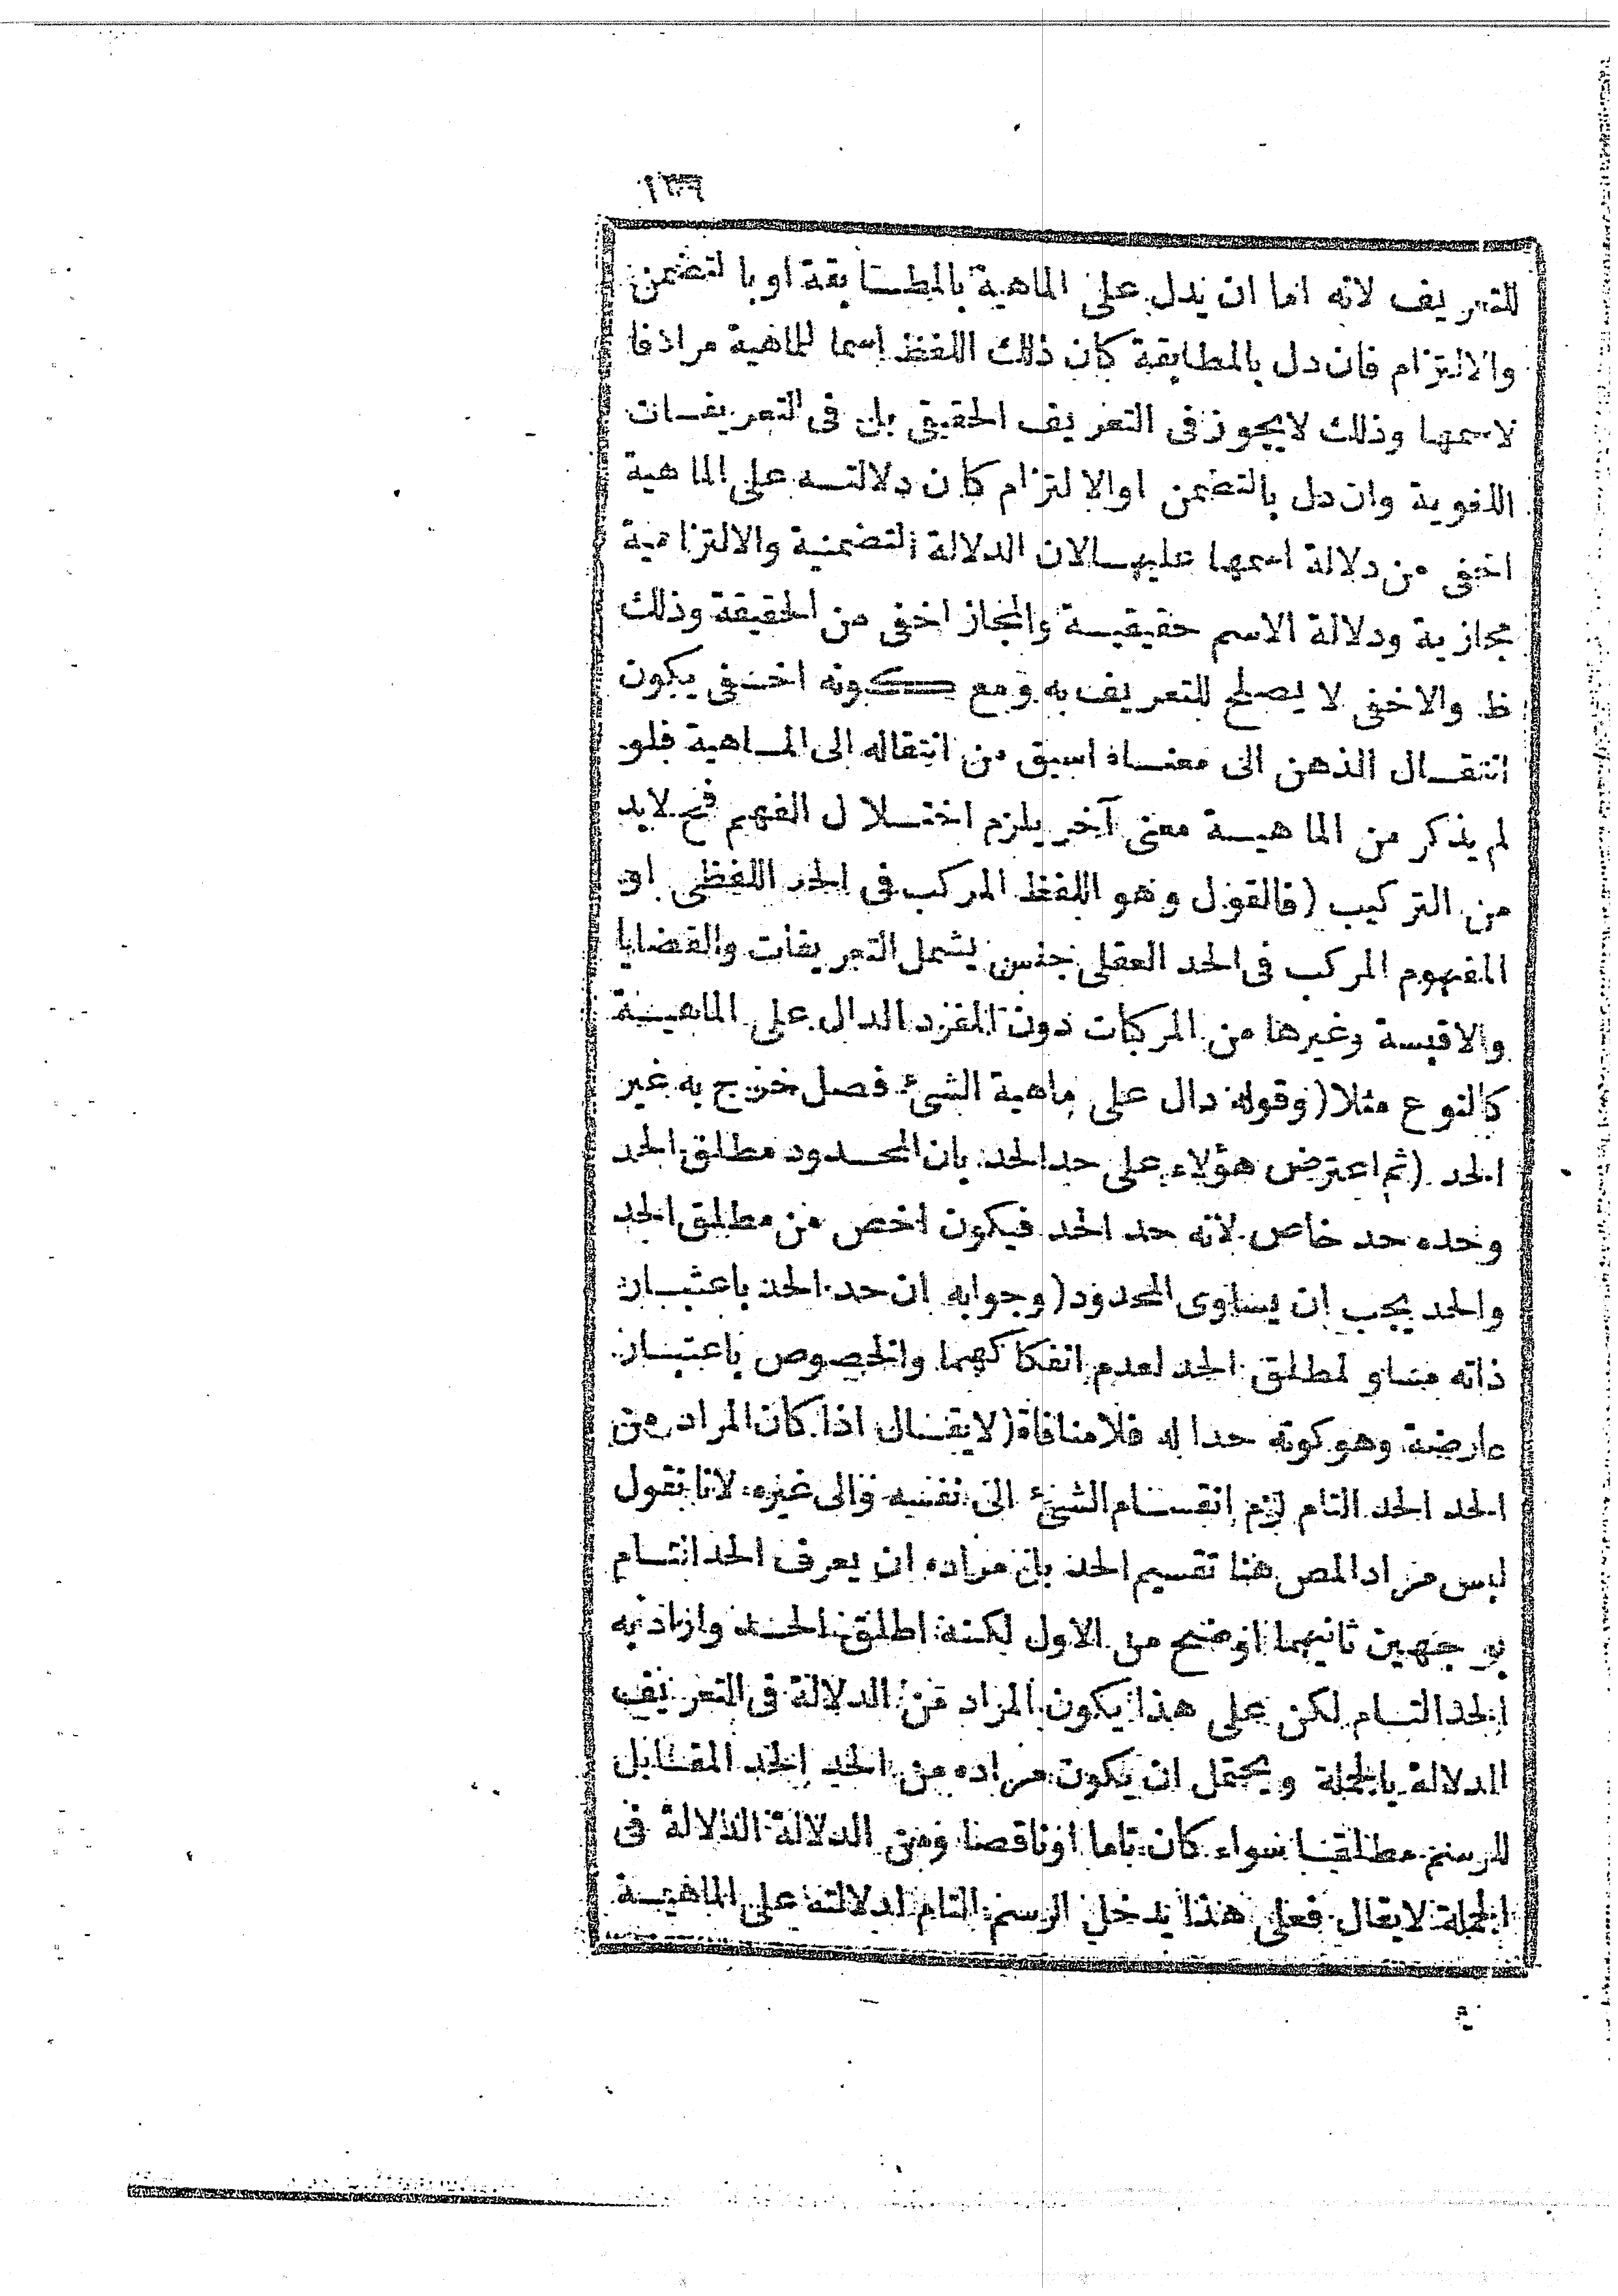 ١٣٩
للتعريف لانه اما ان يدل على الماهية بالمطابقة او بالتضمن
والالتزام فان دل بالمطابقة كان ذلك اللفظ اسما للماهية مرادفا
لاسمها وذلك لايجوز فى التعريف الحقيقى بل فى التعريفات
اللغوية وان دل بالتضمن او الالتزام كان دلالته على الماهية
اخفى من دلالة اسمها عليها لان الدلالة التضمنية والالتزامية
مجازية ودلالة الاسم حقيقية والمجاز اخفى من الحقيقة وذلك
ظ والاخفى لا يصلح للتعريف به ومع كونه اخفى يكون
انتقال الذهن الى معناه اسبق من انتقاله الى الماهية فلو
لم يذكر من الماهية معنى آخر يلزم اختلال الفهم فح لابد
من التركيب (فالقول وهو اللفظ المركب فى الحد اللفظى او
المفهوم المركب فى الحد العقلى جنس يشمل التعريفات والقضايا
والاقيسة وغيرها من المركبات دون المفرد الدال على الماهية
كالنوع مثلا (وقوله دال على ماهية الشئ فصل خرج به غير
الحد (ثم اعترض هؤلاء على حد الحد بان المحدود مطلق الحد
وحده حد خاص لانه حد الحد فيكون اخص من مطلق الحد
والحد يجب ان يساوى المحدود (وجوابه ان حد الحد باعتبار
ذاته مساو لمطلق الحد لعدم انفكاكهما والخصوص باعتبار
عارضة وهو كونه حدا له فلا منافاة (لا يقال اذا كان المراد من
الحد الحد التام لزم انقسام الشئ الى نفسه والى غيره لانا نقول
ليس مراد المص هنا تقسيم الحد بل مراده ان يعرف الحد التام
بوجهين ثانيهما اوضح من الاول لكنه اطلق الحد واراد به
الحد التام لكن على هذا يكون المراد من الدلالة فى التعريف
الدلالة بالجملة ويحتمل ان يكون مراده من الحد الحد المقابل
للرسم مطلقا سواء كان تاما او ناقصا ومن الدلالة الدلالة فى
الجملة لايقال فعلى هذا يدخل الرسم التام لدلالته على الماهية